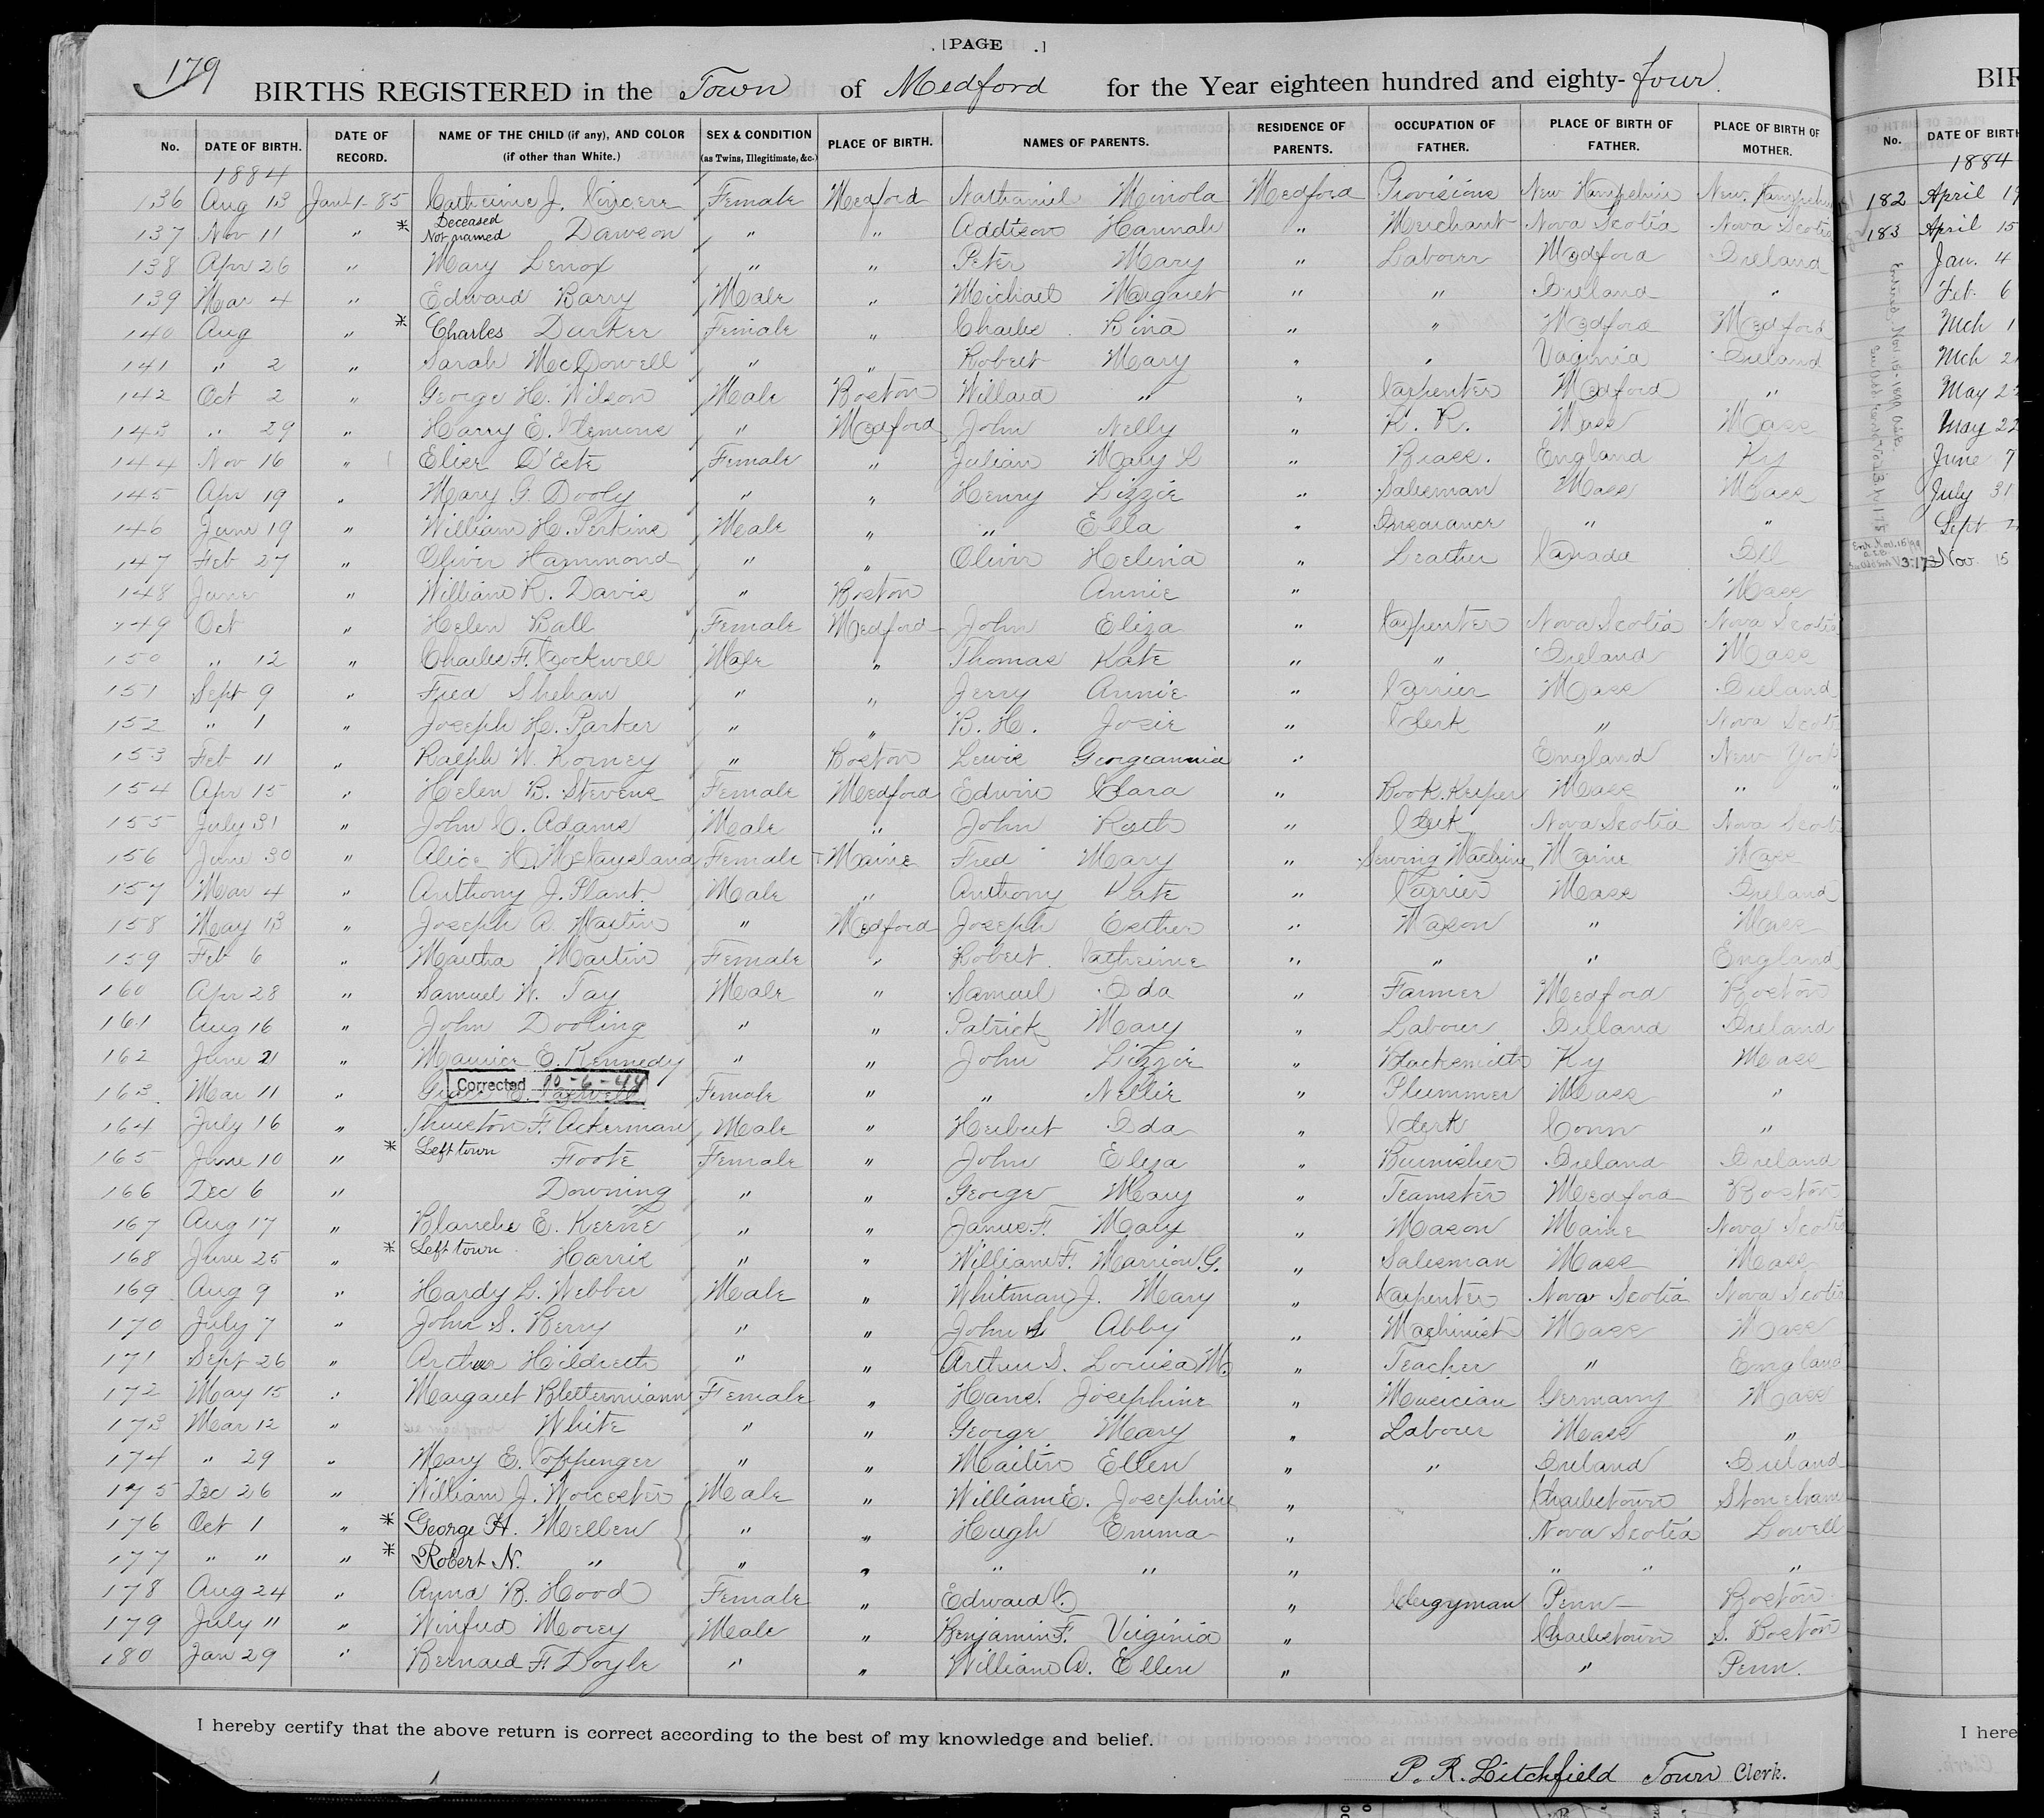 [PAGE .]
179
BIRTHS REGISTERED in the Town of Medford for the Year eighteen hundred and eighty-four.
No. DATE OF BIRTH. DATE OF RECORD. NAME OF THE CHILD (if any), AND COLOR (if other than White.) SEX & CONDITION (as Twins, Illegitimate, &c.) PLACE OF BIRTH. NAMES OF PARENTS. RESIDENCE OF PARENTS. OCCUPATION OF FATHER. PLACE OF BIRTH OF FATHER. PLACE OF BIRTH OF MOTHER.
1884
136 Aug 13 Jan 1-85 Catherine J. Female Medford Nathaniel Minola Medford Provisions New Hampshire New Hampshire
137 Nov 11 " * Deceased Not named Dawson " " Addison Hannah " Merchant Nova Scotia Nova Scotia
138 Apr 26 " Mary Lenox " " Peter Mary " Labourer Medford Ireland
139 Mar 4 " Edward Barry Male " Michael Margaret " " Ireland "
140 Aug " * Charles Durker Female " Charles Bina " " Medford Medford
141 " 2 " Sarah McDowell " " Robert Mary " " Virginia Ireland
142 Oct 2 " George H. Wilson Male Boston Willard " " Carpenter Medford "
143 " 29 " Harry E. Clemons " Medford John Nelly " R. R. Mass Mass
144 Nov 16 " Elise D'Este Female " Julian Mary L " Brass. England Ky
145 Apr 19 " Mary G. Dooly " " Henry Lizzie " Salesman Mass Mass
146 June 19 " William H. Perkins Male " " Ella " Insurance " "
147 Feb 27 " Oliver Hammond " " Oliver Helena " Leather Canada Ill
148 June " William R. Davis " Boston Annie " Mass
149 Oct " Helen Ball Female Medford John Eliza " Carpenter Nova Scotia Nova Scotia
150 " 12 " Charles F. Crockwell Male " Thomas Kate " " Ireland Mass
151 Sept 9 " Fred Shehan " " Jerry Annie " Currier Mass Ireland
152 " 1 " Joseph H. Parker " " B. H. Josie " Clerk " Nova Scot
153 Feb 11 " Ralph W. Korney " Boston Lewis Georgeannia " England New York
154 Apr 15 " Helen B. Stevens Female Medford Edwin Clara " Book Keeper Mass " "
155 July 31 " John C. Adams Male " John Kath " Clerk Nova Scotia Nova Scoti
156 June 30 " Alice H. McCausland Female Maine Fred Mary " Sewing Machine Maine Mass
157 Mar 4 " Anthony J. Plant Male " Anthony Kate " Currier Mass Ireland
158 May 13 " Joseph A. Martin " Medford Joseph Esther " Mason " Mass
159 Feb 6 " Martha Martin Female " Robert Catherine " " " England
160 Apr 28 " Samuel W. Tay Male " Samuel Ida " Farmer Medford Boston
161 Aug 16 " John Dooling " " Patrick Mary " Labourer Ireland Ireland
162 June 21 " Maurice E. Kennedy " " John Lizzie " Blacksmith Ky Mass
163 Mar 11 " Corrected 10-6-44 Female " " Nellie " Plummer Mass "
164 July 16 " Thurston F. Ackerman Male " Herbert Ida " Clerk Conn "
165 June 10 " * Left town Foote Female " John Eliza " Burnisher Ireland Ireland
166 Dec 6 " Downing " " George Mary " Teamster Medford Boston
167 Aug 17 " Blanche E. Kerne " " James F. Mary " Mason Maine Nova Scotia
168 June 25 " * Left town Harris " " William F. Marrion G. " Salesman Mass Mass
169 Aug 9 " Hardy L. Webber Male " Whitman J. Mary " Carpenter Nova Scotia Nova Scotia
170 July 7 " John S. Berry " " John S Abby " Machinist Mass Mass
171 Sept 26 " Arthur Hildreth " " Arthur S. Louisa M. " Teacher " England
172 May 15 " Margaret Blettermiann Female " Hans. Josephine " Musician Germany Mass
173 Mar 12 " White " " George Mary " Labourer Mass "
174 " 29 " Mary E. Coppenger " " Martin Ellen " " Ireland Ireland
175 Dec 26 " William J. Worcester Male " William E. Josephine " Charlestown Stoneham
176 Oct 1 " * George H. Mellen " " Hugh Emma " Nova Scotia Lowell
177 " " " * Robert N. " " " " " " " " "
178 Aug 24 " Anna B. Hood Female " Edward C. " Clergyman Penn Boston
179 July 11 " Winfred Morey Male " Benjamin F. Virginia " Charlestown S. Boston
180 Jan 29 " Bernard F. Doyle " " William A. Ellen " " Penn.
I hereby certify that the above return is correct according to the best of my knowledge and belief.
P. R. Litchfield Town Clerk.
BIR
No. DATE OF BIRTH
1884
182 April 19
183 April 15
Jan. 4
Feb. 6
Mch 1
Mch 2
May 2
May 22
June 7
July 31
Sept 2
3:173 Nov. 15
Entered Nov. 15-1899
I here